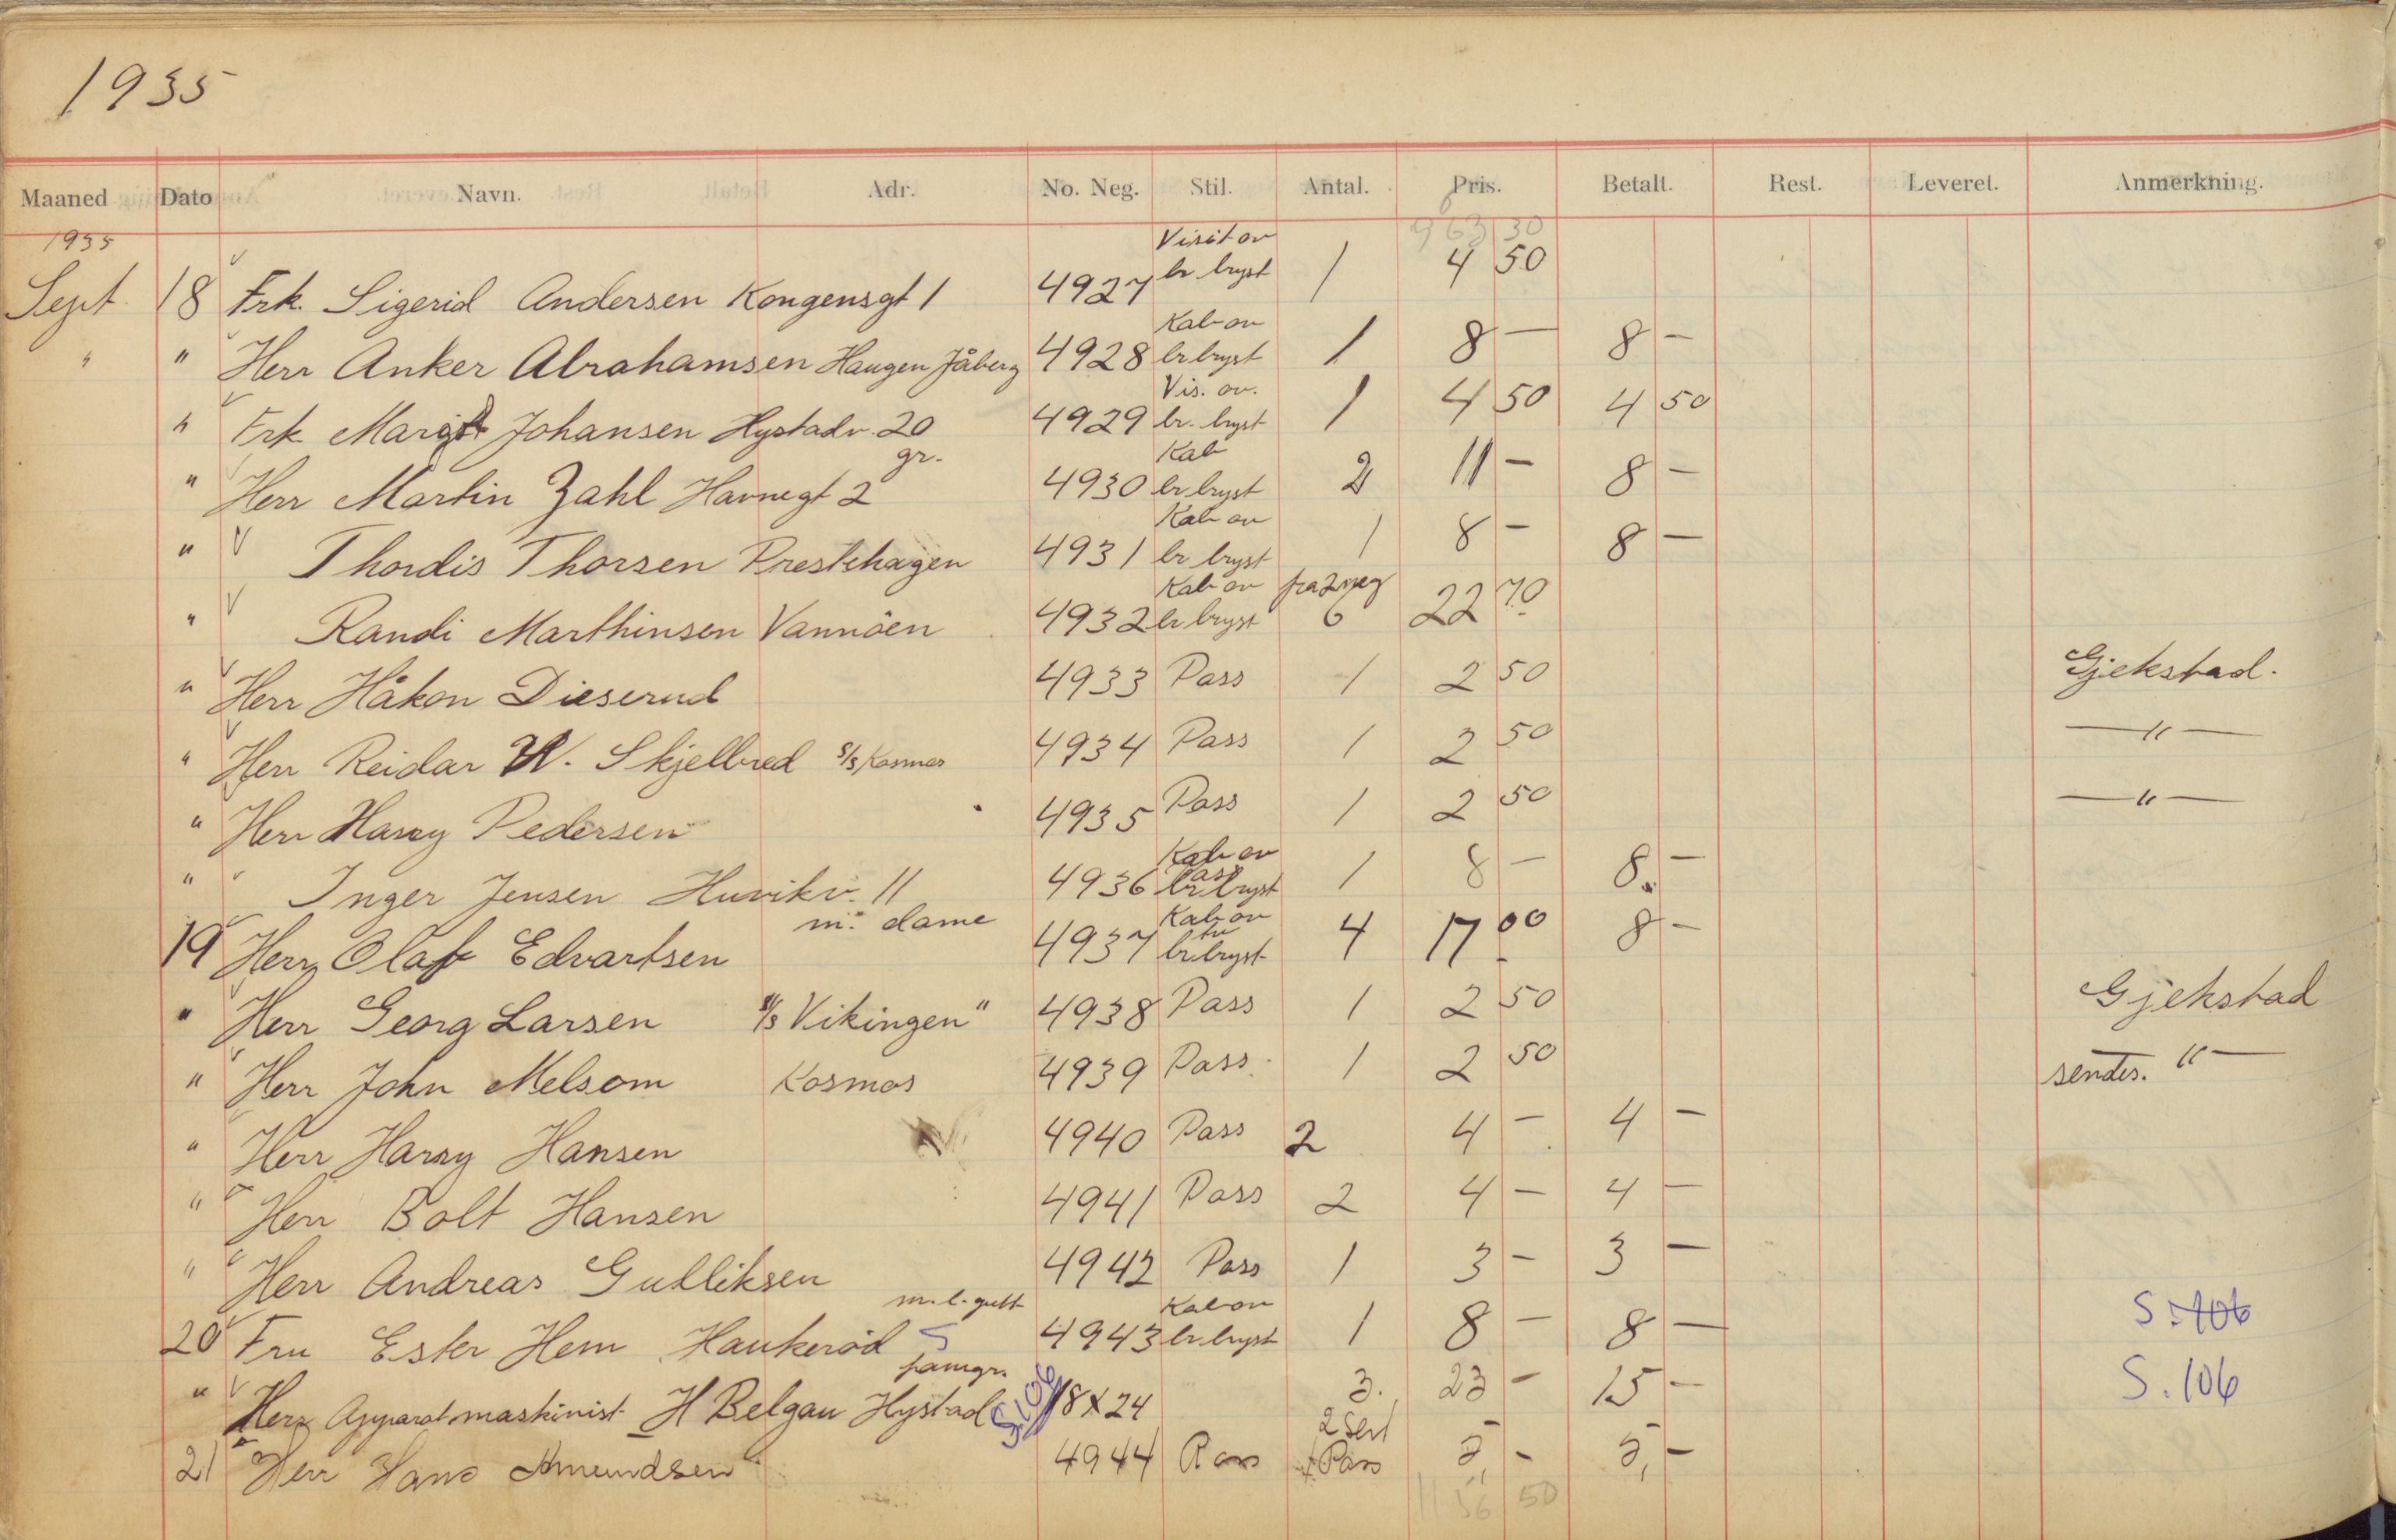 1935
Maaned Dato Navn. Adr. No. Neg. Stil. Antal. Pris. Betalt. Rest. Leveret. Anmerkning.
963 30
1935 Visit ov
Sept. 18 Frk. Sigerid Andersen Kongensgt 1 4927 br bryst 1 4 50
Kab ov
" " Herr Anker Abrahamsen Haugen Jåberg 4928 br bryst 1 8 — 8 —
Vis. ov.
" Frk Margit Johansen Hystadv. 20 4929 br. bryst 1 4 50 4 50
gr. Kab
" Herr Martin Zahl Havnegt 2 4930 br bryst 2 11 — 8 —
Kab ov
" Thordis Thorsen Prestehagen 4931 br bryst 1 8 — 8 —
Kab ov fra 2 neg
" Randi Marthinsen Vannöen 4932 br bryst 6 22 70
" Herr Håkon Dieserud 4933 Pass 1 2 50 Gjekstad.
" Herr Reidar W. Skjelbred S/S Kosmos 4934 Pass 1 2 50 —"—
" Herr Harry Pedersen 4935 Pass 1 2 50 —"—
Kab ov
" Inger Jensen Huvikv. 11 4936 br bryst 1 8 — 8. —
m. dame Kab ov
19 Herr Olaf Edvartsen 4937 br bryst 4 17 00 8 —
" Herr Georg Larsen S/S Vikingen" 4938 Pass 1 2 50 Gjekstad
" Herr John Melsom Kosmos 4939 Pass. 1 2 50 sendes. "—
" Herr Harry Hansen 4940 Pass 2 4 — 4 —
" Herr Bolt Hansen 4941 Pass 2 4 — 4 —
" Herr Andreas Gulliksen 4942 Pass 1 3 — 3 —
m. l. gutt Kab ov
20 Fru Ester Hem Haukeröd S 4943 br. bryst 1 8 — 8 — S. 106
famgr.
" Herr Apparatmaskinist H Belgau Hystad S106 18X24 3. 23 — 15 — S. 106
2 Sert
21 Herr Hans Amundsen 4944 Pass + Pass 5 — 5, —
11 56 50